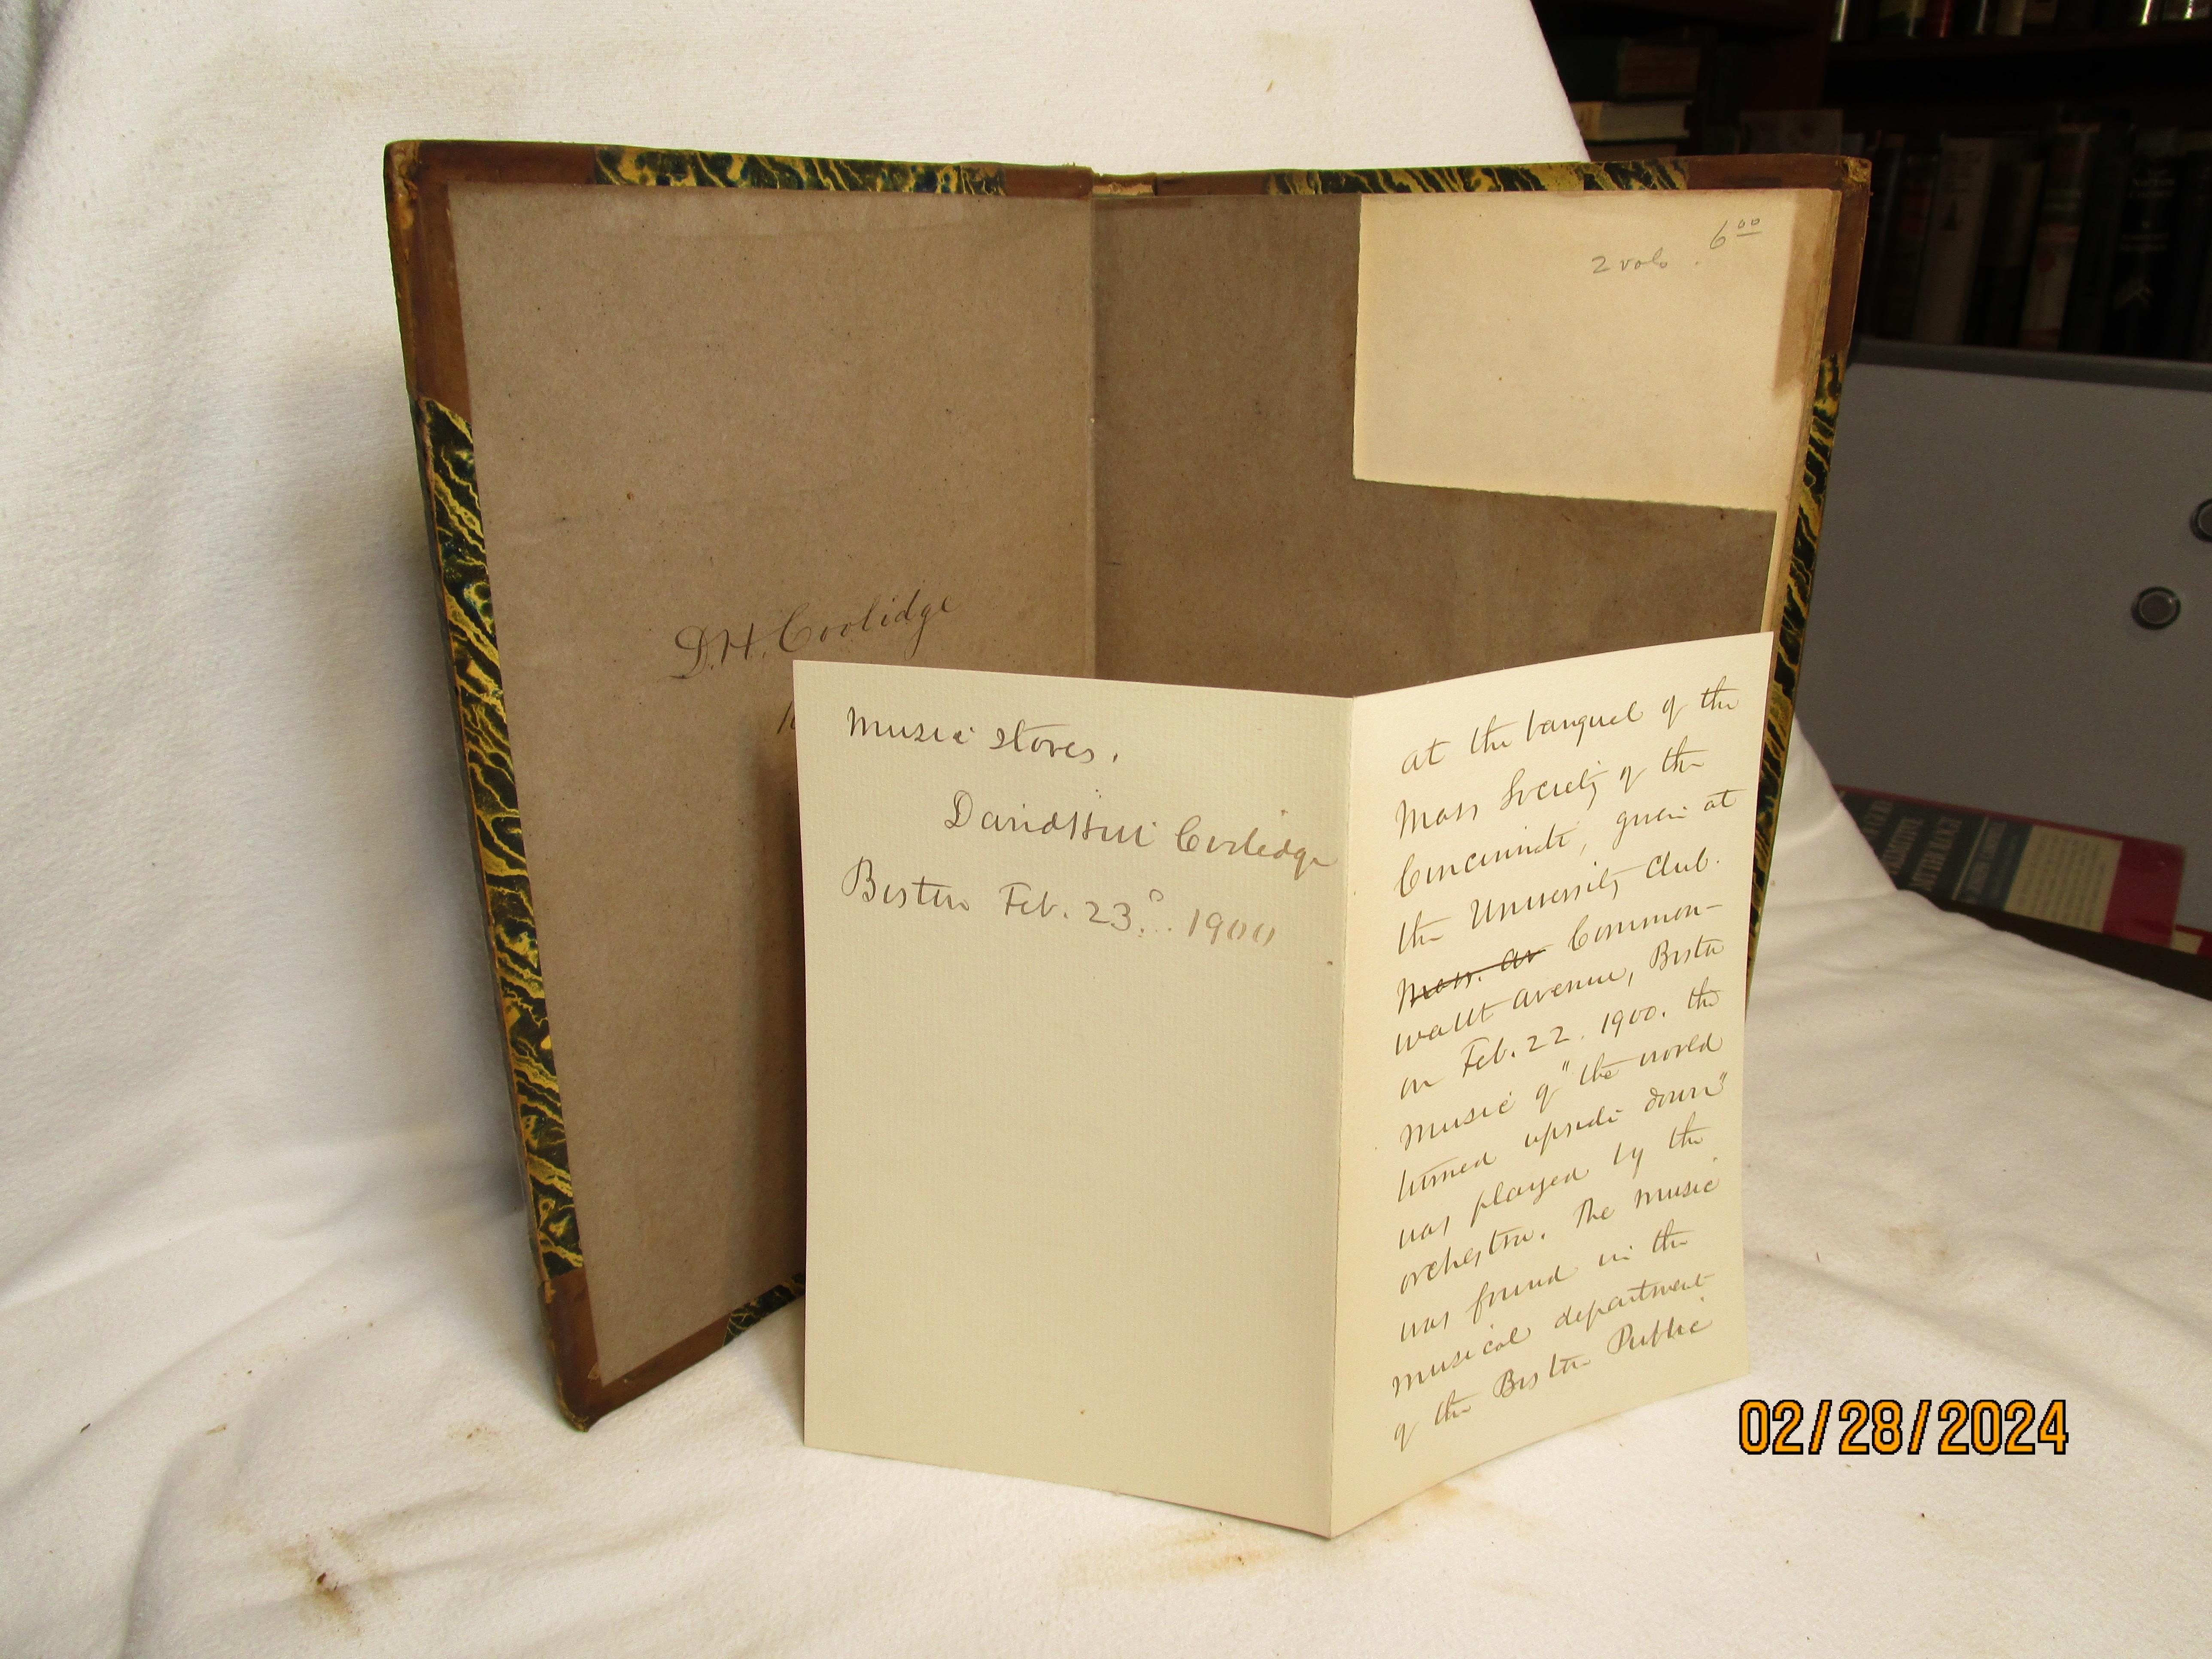 2 vols. 6 00
D.H. Coolidge
Music stores.
David Hill Coolidge
Boston Feb. 23d. 1900
at the banquet of the
Mass Society of the
Cincinnati, given at
the University Club.
Mass. Av Common-
wealt avenue, Boston
on Feb. 22. 1900. the
music of "the world
turned upside down"
was played by the
orchestra. The music
was found in the
musical department
of the Boston Public
02/28/2024